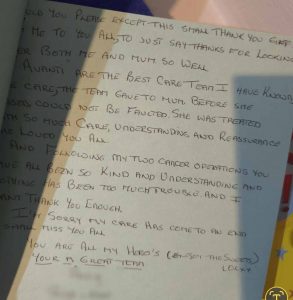 YOU PLEASE EXCEPT THIS SMALL THANK YOU GIFT
ME TO YOU ALL, TO JUST SAY THANKS FOR LOOKING
BOTH ME AND MUM SO WELL.
AVANTI ARE THE BEST CARE TEAM I HAVE KNOWN,
CARE, THE TEAM GAVE TO MUM BEFORE SHE
COULD NOT BE FAULTED. SHE WAS TREATED
SO MUCH CARE, UNDERSTANDING AND REASSURANCE
LOVED YOU ALL.
AND FOLLOWING MY TWO CANCER OPERATIONS YOU
ALL BEEN SO KIND AND UNDERSTANDING AND
HAS BEEN TOO MUCH TROUBLE AND I
THANK YOU ENOUGH.
I'M SORRY MY CARE HAS COME TO AN END
SHALL MISS YOU ALL
YOU ARE ALL MY HERO'S (ENJOY THE SWEETS)
YOUR A GREAT TEAM.